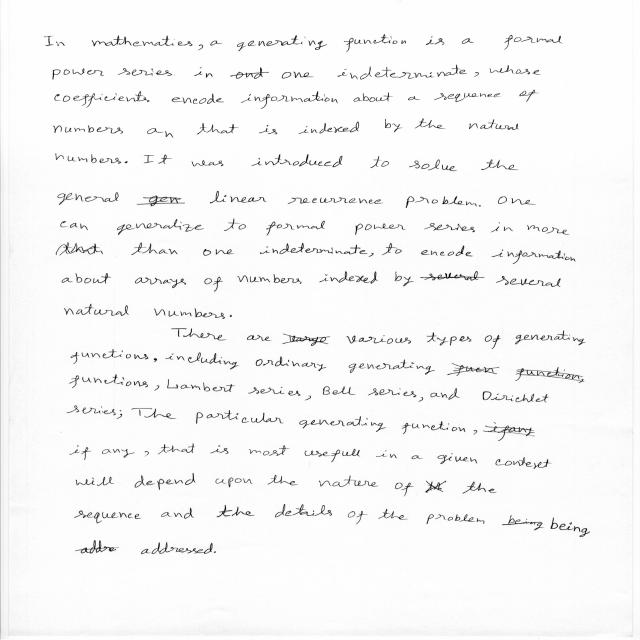 In mathematics, a generating function is a formal
power series in and one indeterminate, whose
coefficients encode information about a sequence of
numbers an that is indexed by the natural
numbers. It was introduced to solve the
general gen linear recurrence problem. One
can generalize to formal power series in more
than one indeterminate, to encode information
about arrays of numbers indexed by several several
natural numbers.
There are large various types of generating
functions, including ordinary generating function,
functions, Lambert series, Bell series, and Dirichlet
series; The particular generating function, if any
if any, that is most usefull in a given context
will depend upon the nature of the
sequence and the details of the problem being being
addre addressed.